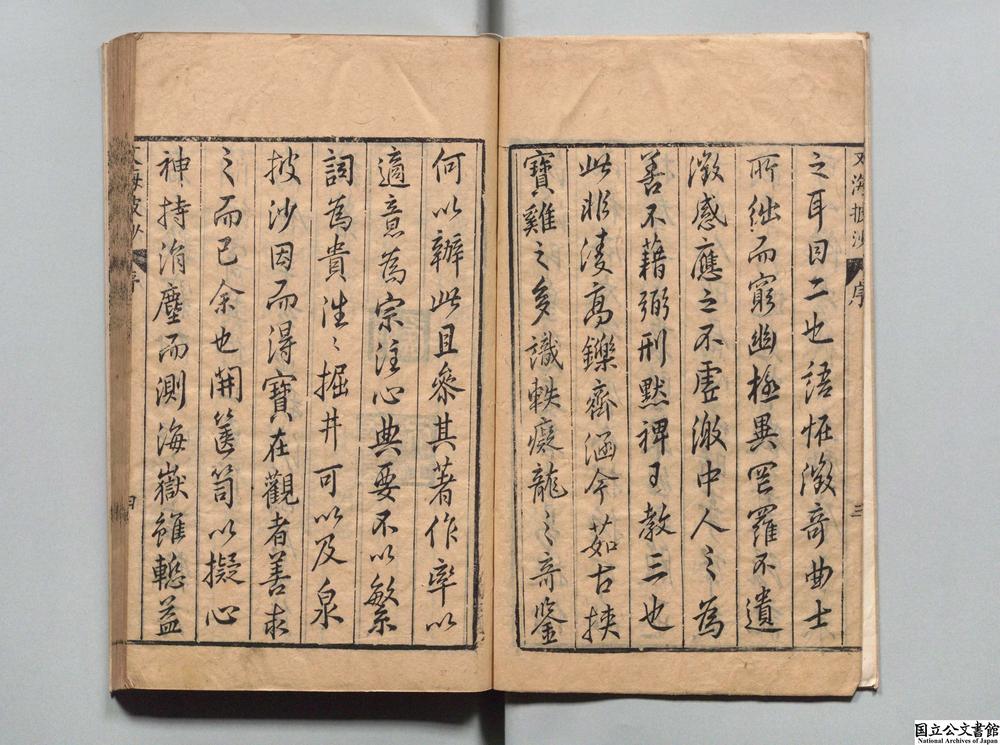 文海披沙
序
三
之耳目二也語恠徵奇曲士
所絀而窮幽極異罟羅不遺
徵感應之不虛激中人之為
善不藉弼刑默裨王教三也
此非淩高鑠齊涵今茹古挾
寶雞之多識軼癡龍之奇鑒
何以辦此且參其著作率以
適意為宗注心典要不以繁
詞為貴泩〻掘井可以及泉
披沙因而淂寶在觀者善求
之而已余也開篋笥以擬心
神持涓塵而測海嶽雖慙益
文海披沙
序
四
国立公文書館
National Archives of Japan